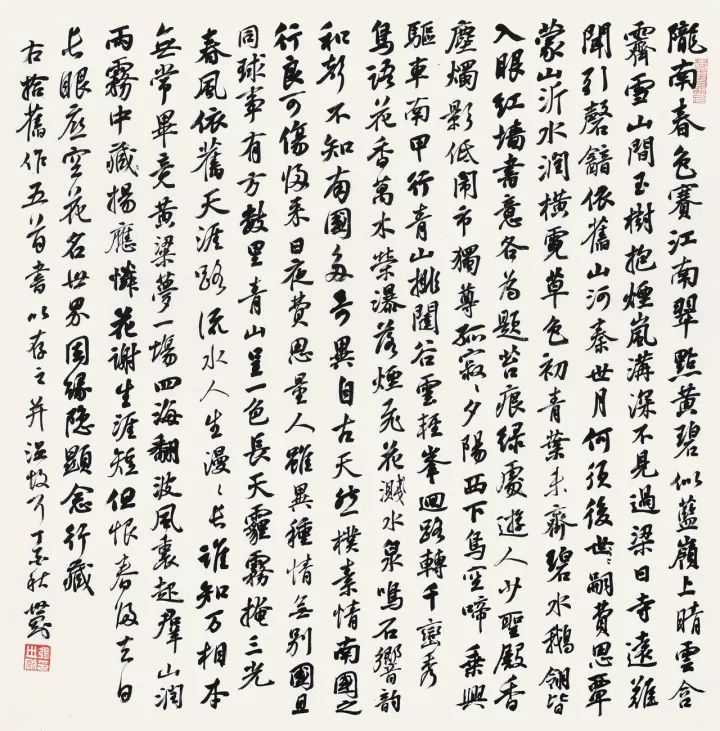 隴南春色賽江南翠點黃碧似藍嶺上晴雲含
霽雪山間玉樹抱煙嵐溝深不見過梁日寺遠難
聞引磬龤依舊山河秦世月何須後世々嗣費思覃
蒙山沂水潤橫霓草色初青葉未齊碧水鵝翎皆
入眼紅墻書意各為題苔痕綠處遊人少聖殿香
塵燭影低鬧市獨尊孤寂々夕陽西下鳥空啼乘興
驅車南甲行青山排闥谷雲輕峯迴路轉千巒秀
鳥語花香萬木榮瀑落煙飛花濺水泉鳴石響韻
和不知南國多奇異自古天然樸素情南國之
行良可傷歸來日夜費思量人雖異種情無別國且
同球事有方數里青山呈一色長天霾霧掩三光
春風依舊天涯路流水人生漫々長誰知万相本
無常畢竟黃粱夢一場四海翻波風裏起群山潤
雨霧中藏揚應憐花謝生涯短但恨春歸去日
長眼底空花名世界因緣隱顯念行藏
右拾舊作五首書以存之并溫故丁酉秋世